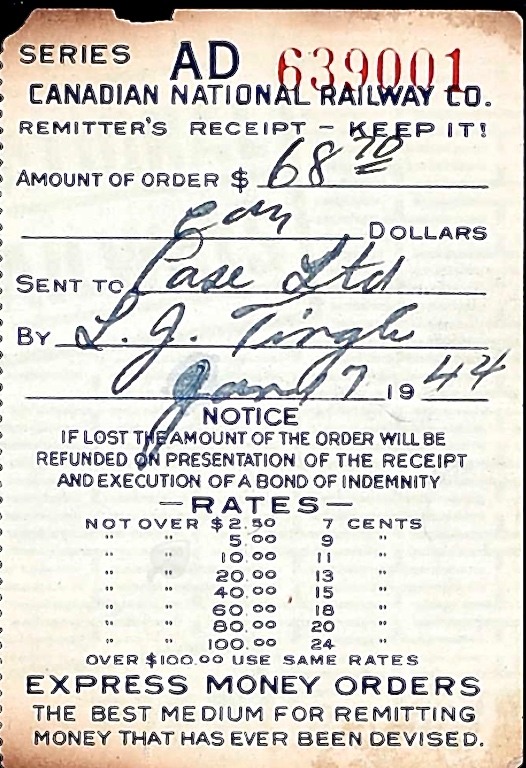 SERIES AD 639001
CANADIAN NATIONAL RAILWAY CO.
REMITTER'S RECEIPT – KEEP IT!
AMOUNT OF ORDER $ 68 70
DOLLARS
SENT TO Case Ltd
BY L. J. Tingle
Jany 7 19 44
NOTICE
IF LOST THE AMOUNT OF THE ORDER WILL BE
REFUNDED ON PRESENTATION OF THE RECEIPT
AND EXECUTION OF A BOND OF INDEMNITY
—RATES—
NOT OVER $ 2.50 7 CENTS
" " 5.00 9 "
" " 10.00 11 "
" " 20.00 13 "
" " 40.00 15 "
" " 60.00 18 "
" " 80.00 20 "
" " 100.00 24 "
OVER $100.00 USE SAME RATES
EXPRESS MONEY ORDERS
THE BEST MEDIUM FOR REMITTING
MONEY THAT HAS EVER BEEN DEVISED.